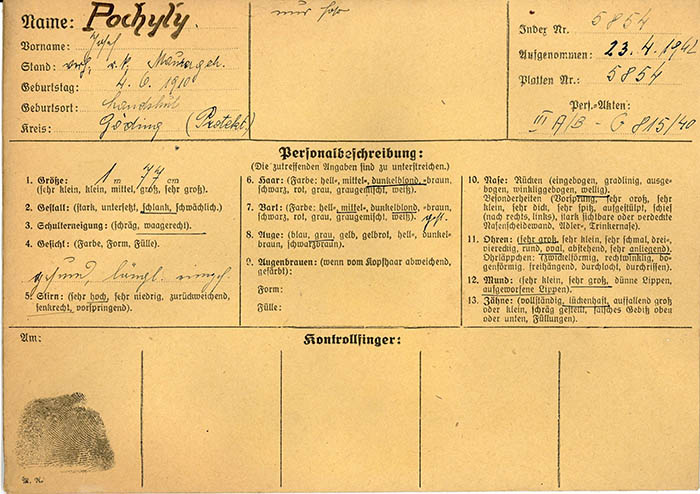 Name: Pochyly.
Vorname: Josef
Stand: verh. r. k. Maurergeh.
Geburtstag: 4. 6. 1910
Geburtsort: Landshut
Kreis: Göding (Protekt.)
nur
Index Nr. 5854
Aufgenommen: 23. 4. 1942
Platten Nr.: 5854
Pers.-Akten:
III A/B - G 815/40
Personalbeschreibung:
(Die zutreffenden Angaben sind zu unterstreichen.)
1. Größe: 1 m 77 cm
(sehr klein, klein, mittel, groß, sehr groß).
2. Gestalt: (stark, untersetzt, schlank, schwächlich).
3. Schulterneigung: (schräg, waagerecht).
4. Gesicht: (Farbe, Form, Fülle).
gesund, längl.
5. Stirn: (sehr hoch, sehr niedrig, zurückweichend,
senkrecht, vorspringend).
6. Haar: (Farbe: hell-, mittel-, dunkelblond, -braun,
schwarz, rot, grau, graugemischt, weiß).
7. Bart: (Farbe: hell-, mittel-, dunkelblond, -braun,
schwarz, rot, grau, graugemischt, weiß).
8. Auge: (blau, grau, gelb, gelbrot, hell-, dunkel-
braun, schwarzbraun).
9. Augenbrauen: (wenn vom Kopfhaar abweichend,
gefärbt):
Form:
Fülle:
10. Nase: Rücken (eingebogen, gradlinig, ausge-
bogen, winkliggebogen, wellig).
Besonderheiten (Vorsprung, sehr groß, sehr
klein, sehr dick, sehr spitz, aufgestülpt, schief
(nach rechts, links), stark sichtbare oder verdeckte
Nasenscheidewand, Adler-, Trinkernase).
11. Ohren: (sehr groß, sehr klein, sehr schmal, drei-,
viereckig, rund, oval, abstehend, sehr anliegend).
Ohrläppchen: (zwickelförmig, rechtwinklig, bo-
genförmig, freihängend, durchlocht, durchrissen).
12. Mund: (sehr klein, sehr groß, dünne Lippen,
aufgeworfene Lippen).
13. Zähne: (vollständig, lückenhaft, auffallend groß
oder klein, schräg gestellt, falsches Gebiß oben
oder unten, Füllungen).
Am:
Kontrollfinger: